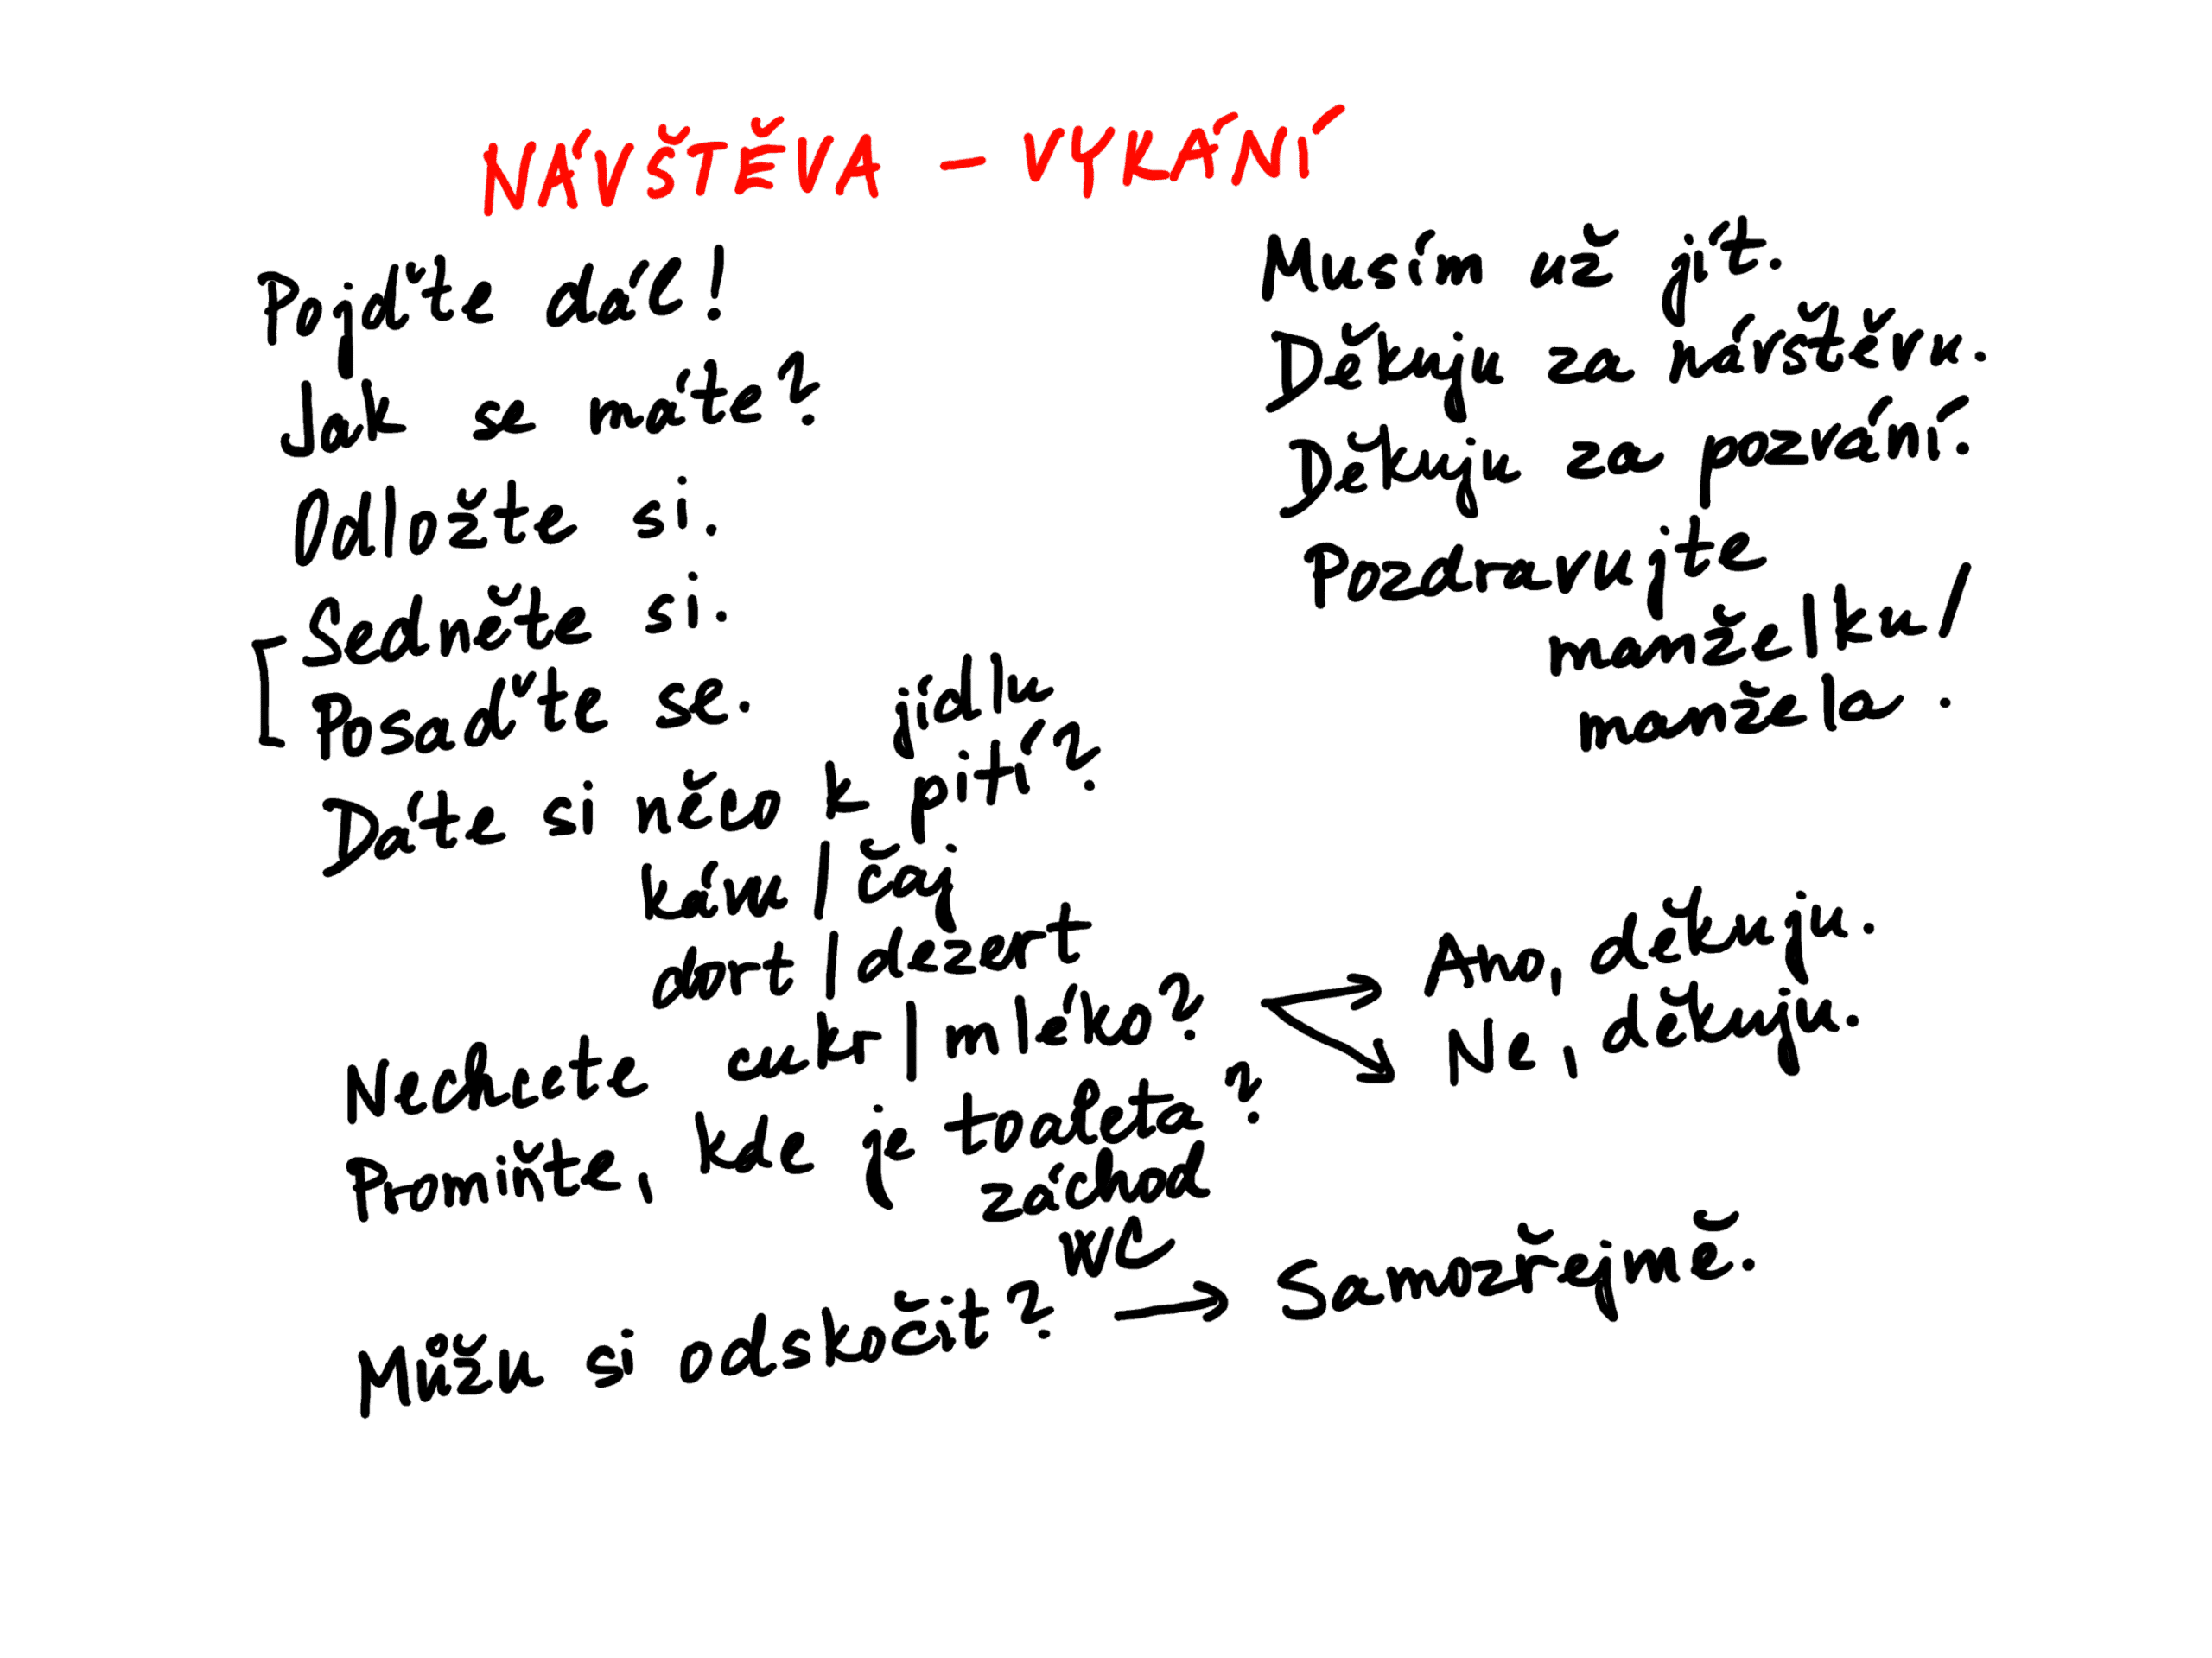 NÁVŠTĚVA – VYKÁNÍ
Pojďte dál!
Jak se máte?
Odložte si.
Sedněte si.
Posaďte se.
jídlu
Dáte si něco k pití?
kávu / čaj
dort / dezert
Nechcete cukr / mléko?
Ano, děkuju.
Ne, děkuju.
Promiňte, kde je toaleta?
záchod
WC
Můžu si odskočit? → Samozřejmě.
Musím už jít.
Děkuju za návštěvu.
Děkuju za pozvání.
Pozdravujte
manželku /
manžela.